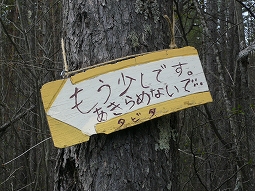 もう少しです。
あきらめないで…
タビタ